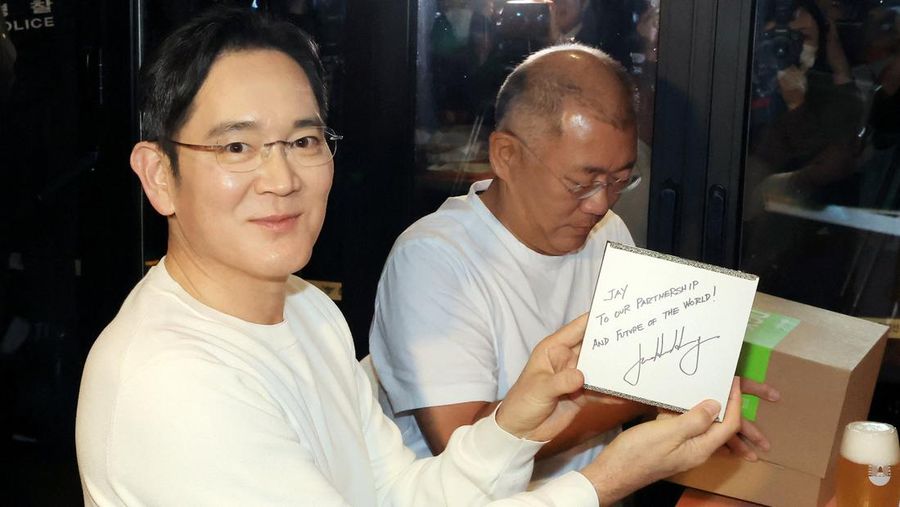 POLICE
JAY
TO OUR PARTNERSHIP
AND FUTURE OF THE WORLD!